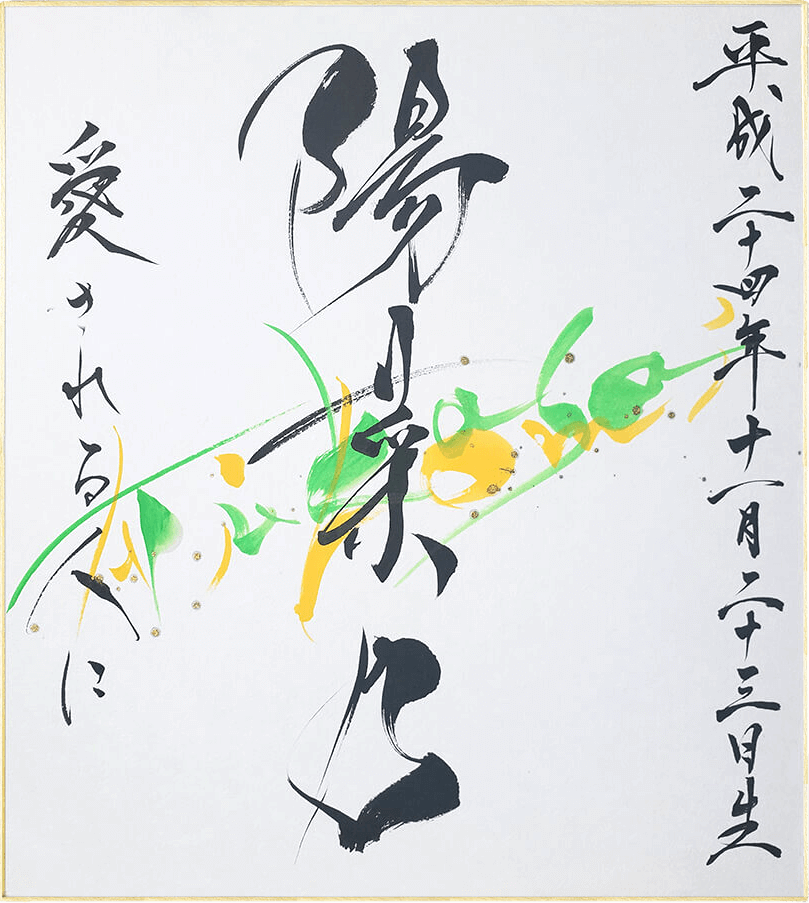 平成二十四年十一月二十三日生
陽菜乃
愛される人に